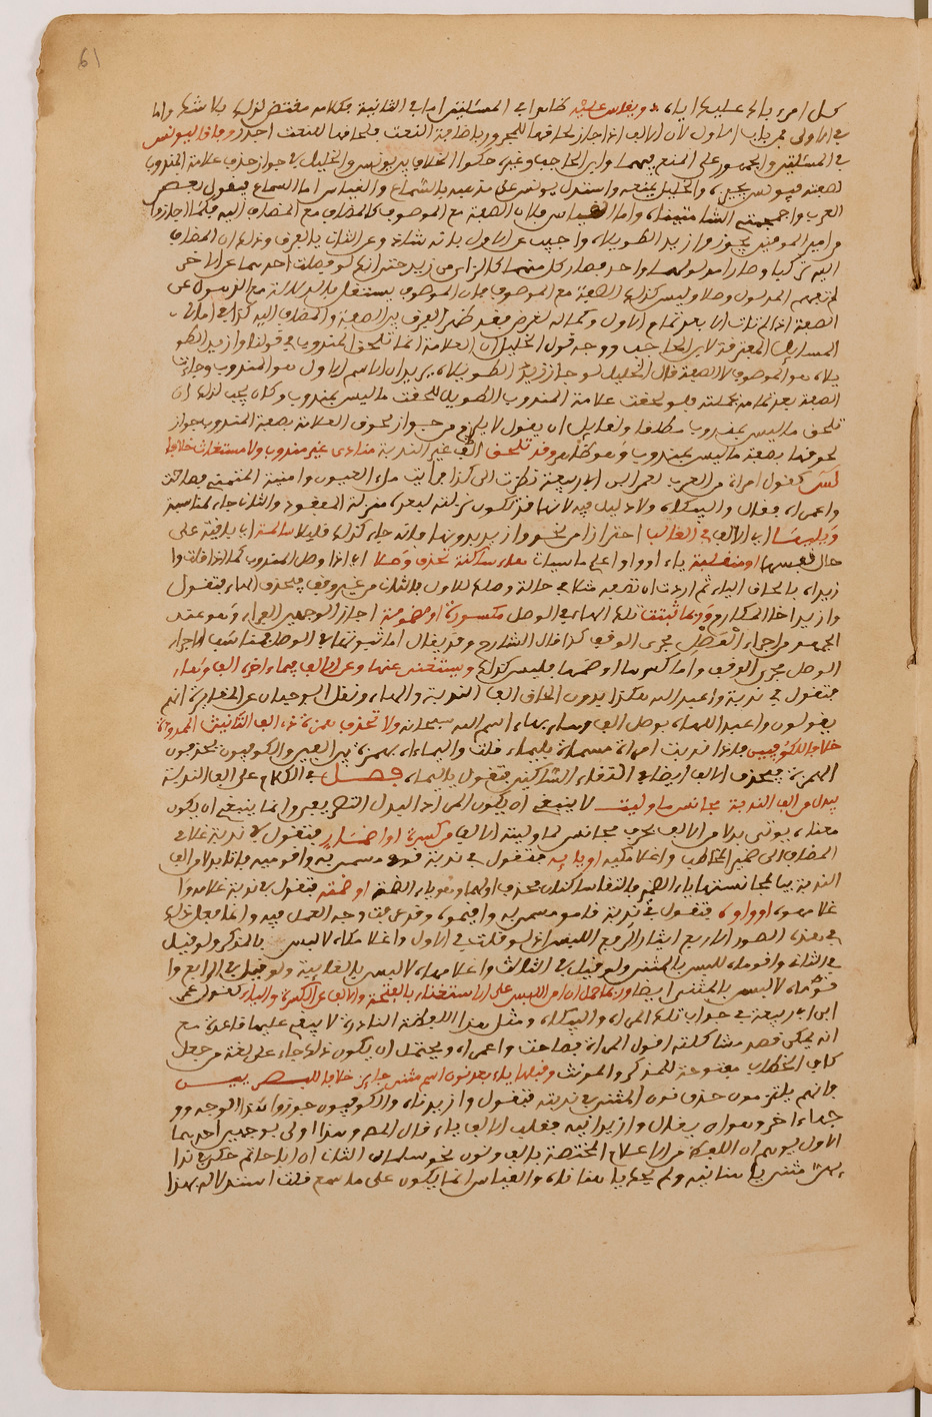 61
كل امرء يا لا عليها اياه ويقاس عليه
في الاولى من باب اولى لان الالف اذا جاز لحاقها للمجرور باضافة النعت فلحاقها للنعت اجدر وفاقا ليونس
في المسئلتين والجمهور على المنع فيهما وابن الحاجب وغيره حكوا الخلاف بين يونس والخليل في جواز حذف علامة المندوب
لصفته فيونس يجيزه والخليل يمنعه واستدل يونس على مذهبه بالسماع والقياس اما السماع فيقول بعض
العرب واجمجمتي الشاميتيناه واما القياس فلان الصفة مع الموصوف كالمضاف مع المضاف اليه فكما اجازوا
وا امير المومنين يجوز وا زيد الطويلاه واجيب عن الاول بانه شاذ وعن الثاني بالفرق وذلك ان المضاف
اليه تركبا وصارا مدلولهما واحد فصار كل منهما كالزاي من زيد حتى انك لو فصلت احدهما عن الاخر
لم تفهم المدلول وليس كذلك الصفة مع الموصوف فان الموصوف يستقل بالدلالة مع الذهول عن
الصفة اذ لم تات الا بعد تمام الاول وكماله لغرض فقد ظهر الفرق بين الصفة والمضاف اليه كذا في
المسائل المتفرقة لابن الحاجب ووجه قول الخليل ان العلامة انما تلحق المندوب في قولنا وازيد الطو
يلاه هو الموصوف لا الصفة قال الخليل لو جاز وازيد الطويلاه يريد ان الاسم الاول هو المندوب وجاءت
الصفة بعد تمامه بجملته فلو لحقت علامة المندوب الطويل للحقت ما ليس بمندوب وكان يجب لذلك ان
تلحق ما ليس بمندوب مطلقا ولقايل ان يقول لا يلزم من جواز لحوق العلامة بصفة المندوب جواز
لحوقها بصفة ما ليس بمندوب وهو ظاهر وقد تلحق الف غير الندبة منادى غير مندوب ولا مستغاث خلافا
لس كقول امراة من العرب لعمر ابن ابي ربيعة نظرت الى كذا فرايت ملء العيون وامنية المتمني فصاحت
واعمراه فقال والبيكاه ولا دليل فيه لانها قد تكون نزلته لبعده منزلة المفقود والثاني جاء لمناسبة
ويليها اي الالف في الغالب احترازا من نحو وازيد بدونها فانه جاء كذلك قليلا سالمة اي باقية على
حال نفسها او منقلبة ياء او واوا على ما سيات هاء ساكنة تحذف وصلا اي اذا وصل المندوب كما اذا قلت وا
زيداه بالحاق الياء ثم اردت ان تضعه مثلا في حالة وصله للاول بالثاني من غير وقف فتحذف الهاء فتقول
وازيدا اخا المكارم وربما ثبتت تلك الهاء في الوصل مكسورة او مضمومة اجاز الوجهين الفراء وهو عند
الجمهور من اجراء الوصل مجرى الوقف كذا قال الشارح وقد يقال اما ثبوتها في الوصل فمناسب لاجراء
الوصل مجرى الوقف واما كسرها او ضمها فليس كذلك ويستغنى عنها وعن الالف فيما اخره الف وهاء
فتقول في ندبة واعبد الله هكذا بدون الحاق الف الندبة والهاء ونقل ابو حيان عن المغاربة انهم
يقولون واعبد اللهاه بوصل الف وهاء بهاء اسم الله سبحانه ولا تحذف همزة ذي الف التانيث الممدودة
خلافا للكوفيين فاذا ندبت امراة مسماة بلمياء قلت والمياءاه بهمزة بين الفين والكوفيون يحذفون
الهمزة فتحذف الالف ايضا في التقاء الساكنين فتقول بالمياه فصل في الكلام على الف الندبة
يبدل من الف الندبة مجانس ما وليت لا ينبغي ان يكون المراد البدل التصريفي وانما ينبغي ان يكون
معناه يوتى بدلا من الالف بحرف مجانس لما وليته الالف من كسرة او اضمار فتقول في ندبة غلام
المضاف الى ضمير المخاطب واغلامكيه او ياء فتقول في ندبة قوم مسمى به واقوميه فاتا بدلا من الف
الندبة بيا لمجانستها ياء الضمير فالتقا ساكنان فحذف اولهما وهو ياء الضمير او ضمة فتقول في ندبة غلامه وا
غلامهوه او واو فتقول في ندبة قاموا مسمى به واقموه وقد عرفت وجه العمل فيه وانما فعل ذلك
في هذه الصور الاربع ايثارا لرفع اللبس اذ لو قلت في الاول واغلامكاه لالبس بالمذكر ولو قيل
في الثاني واقوماه للبس بالمثنى ولو قيل في الثالث واغلامهاه لالبس بالغايبة ولو قيل في الرابع وا
قوماه لالبس بالمثنى ايضا وربما حمل امن اللبس على الاستغناء بالفتحة والالف عن الكسرة والياء كقول عمر
ابن ابي ربيعة في جواب تلك المراة والبيكاه ومثل هذا اللفظة النادرة لا ينبغي عليها قاعدة مع
انه يمكن قصد مشاكلته لقول المراة فصاحت واعمراه ويحتمل ان يكون ذلك جاء على لغة من جعل
كاف الخطاب مفتوحة للمذكر والمونث وقلبها ياء بعد نون اسم مثنى جايز خلافا للبصريين
فانهم يلتزمون حذف نون المثنى في ندبته فتقول وازيدناه والكوفيون جوزوا هذا الوجه وو
جهاء اخر وهو ان يقال وازيدانيه فقلب الالف ياء قال المص وهذا اولى بوجهين احدهما
الاول يوهم ان اللفظ من الاعلام المختصة بالف ونون نحو سلمان الثاني ان ابا حاتم حكى في ندا
هن مثنى يا هنانيه ولم يحك يا هناناه والقياس انما يكون على ما سمع قلت استدلاله بهذا